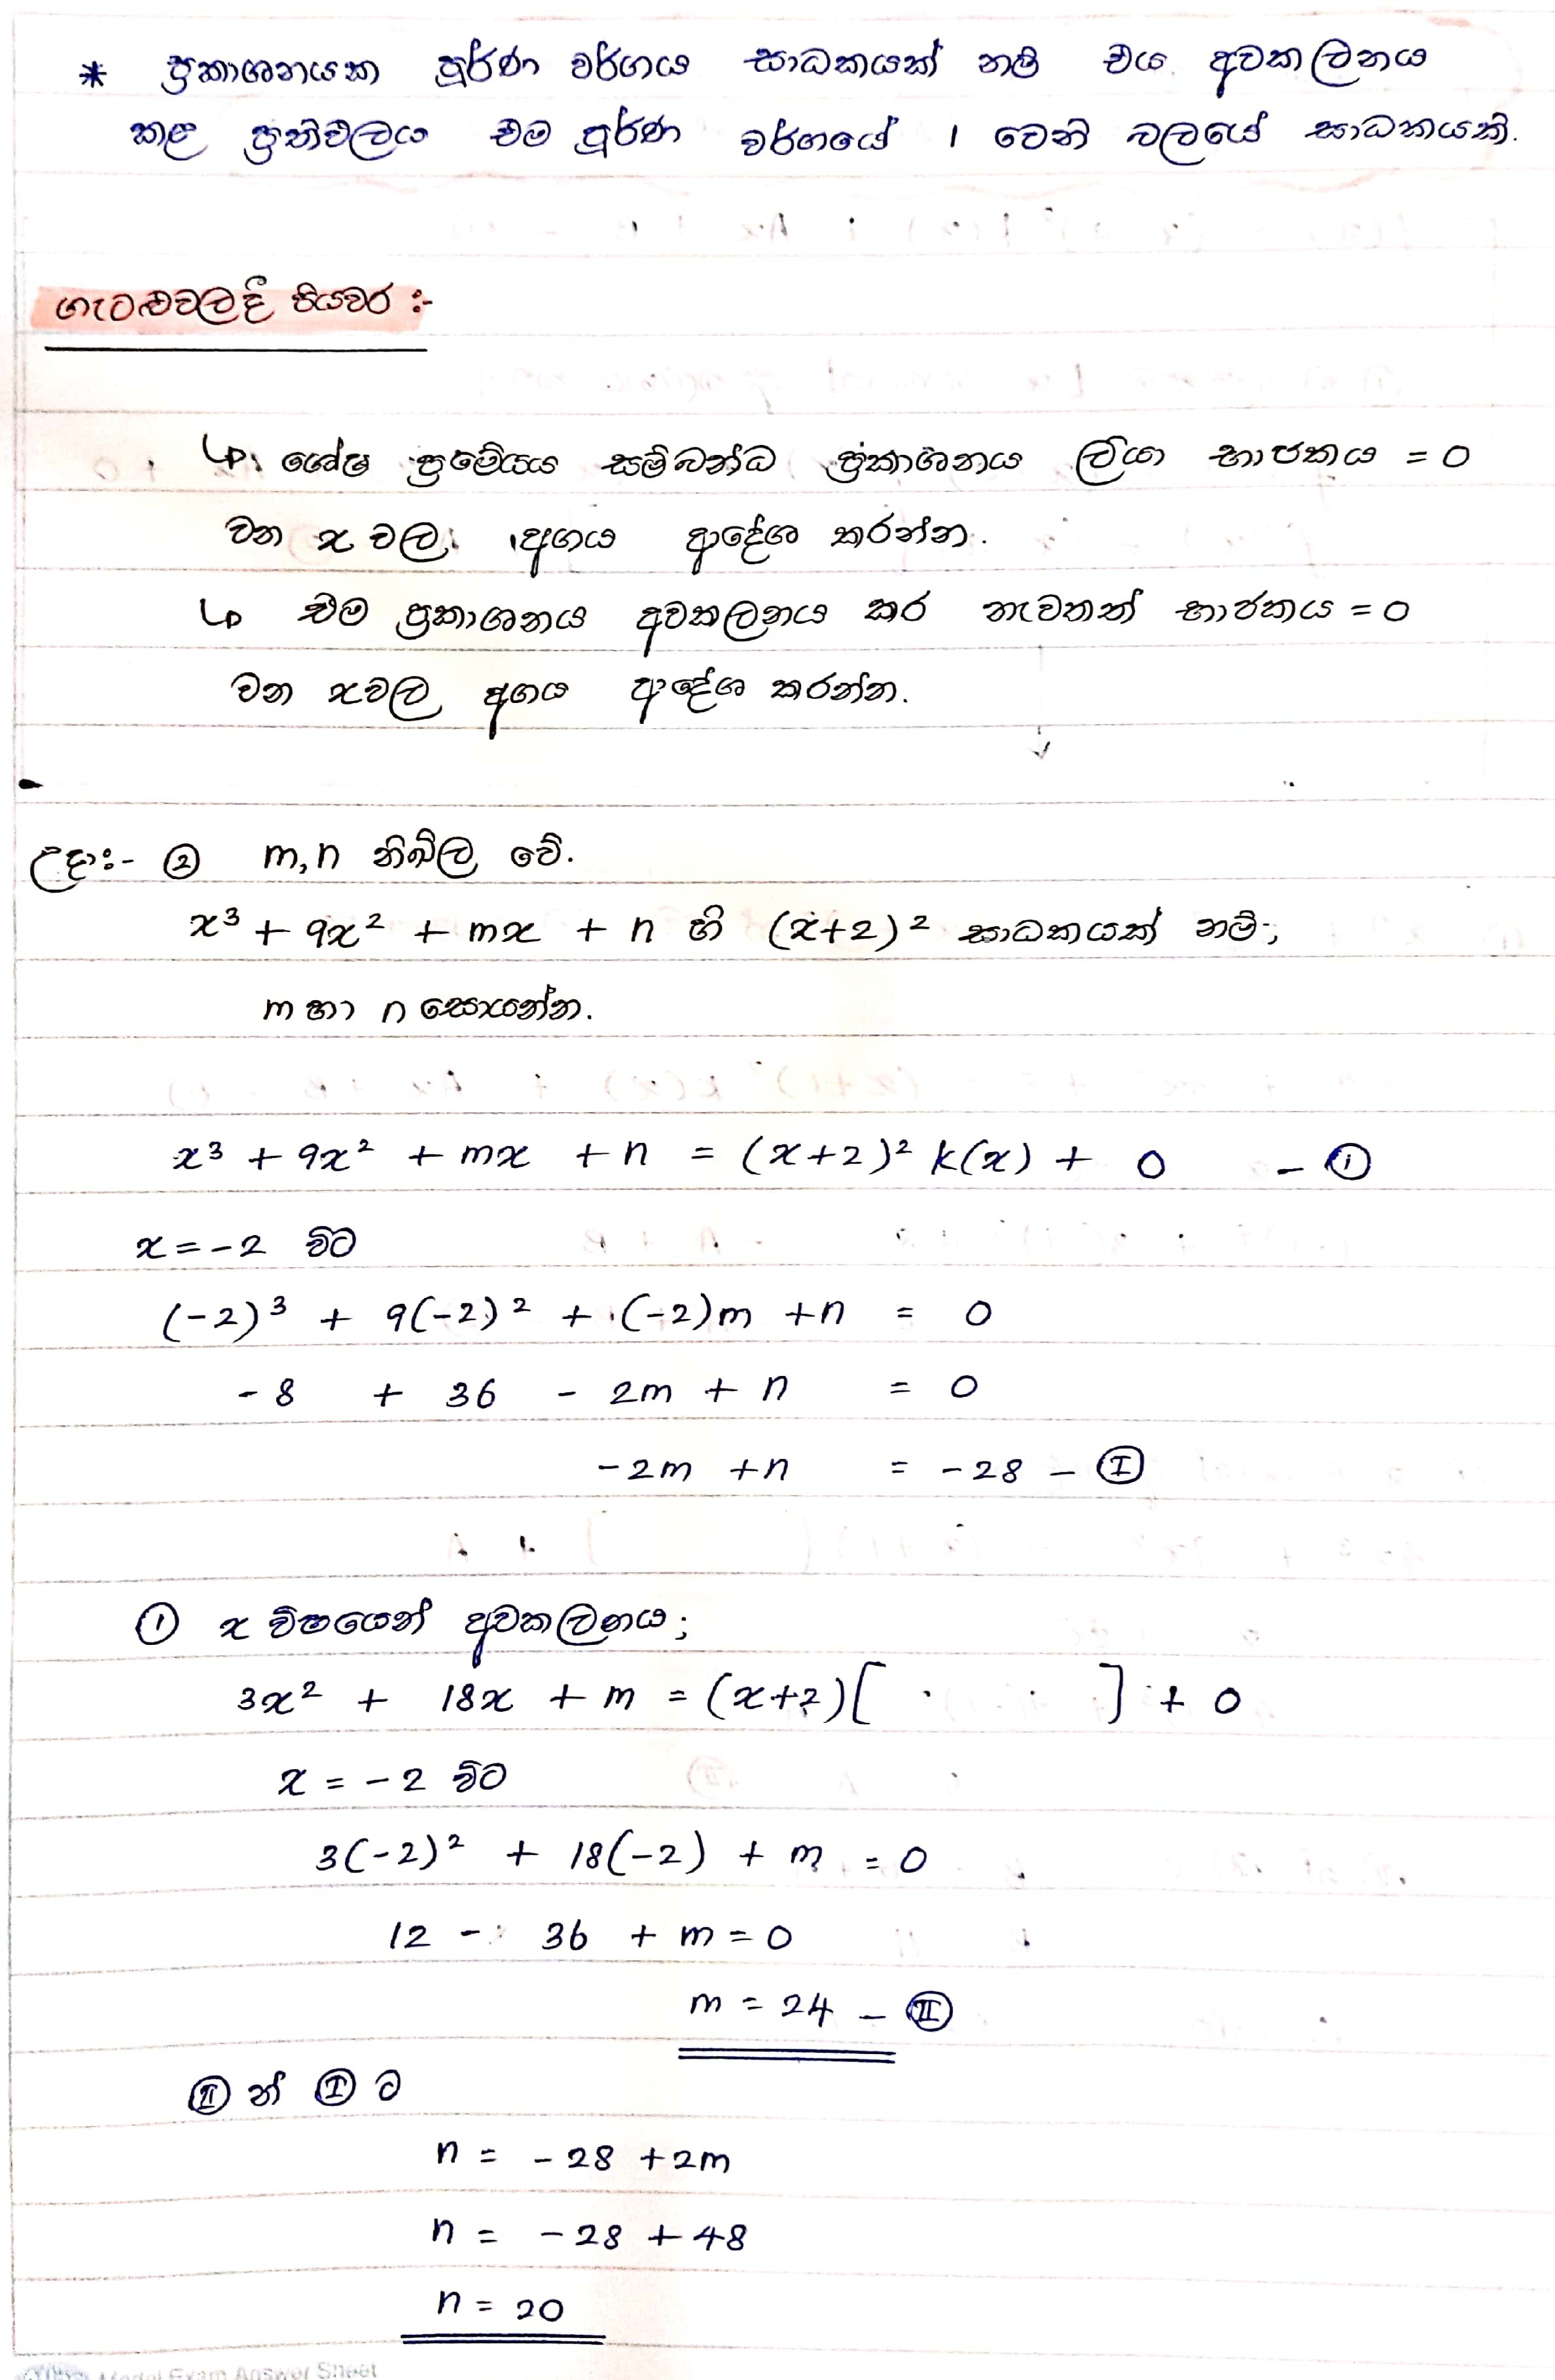 * ප්‍රකාශනයක පූර්ණ වර්ගය සාධකයක් නම් එය අවකලනය
කළ ප්‍රතිඵලය එම පූර්ණ වර්ගයේ 1 වෙනි බලයේ සාධකයකි.
ගැටළුවලදී පියවර :-
↳ ශේෂ ප්‍රමේයය සම්බන්ධ ප්‍රකාශනය ලියා භාජකය = 0
වන x වල අගය ආදේශ කරන්න.
↳ එම ප්‍රකාශනය අවකලනය කර නැවතත් භාජකය = 0
වන x වල අගය ආදේශ කරන්න.
උදා:- ② m, n නිඛිල වේ.
x³ + 9x² + mx + n හි (x+2)² සාධකයක් නම්;
m හා n සොයන්න.
x³ + 9x² + mx + n = (x+2)² k(x) + 0 - ①
x = -2 විට
(-2)³ + 9(-2)² + (-2)m + n = 0
-8 + 36 - 2m + n = 0
-2m + n = -28 - Ⓘ
① x විෂයෙන් අවකලනය;
3x² + 18x + m = (x+2)[ ] + 0
x = -2 විට
3(-2)² + 18(-2) + m = 0
12 - 36 + m = 0
m = 24 - (II)
(II) න් Ⓘ ට
n = -28 + 2m
n = -28 + 48
n = 20
Model Exam Answer Sheet